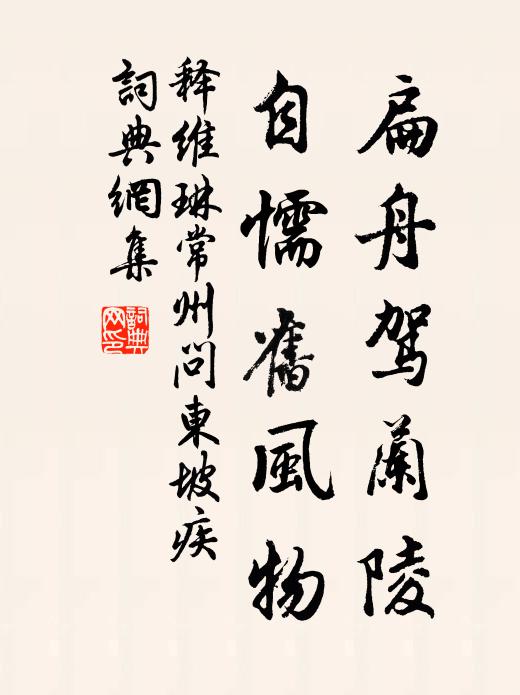 扁舟駕蘭陵
自懦舊風物
释維琳常州问東坡疾
詞典網集
詞典网印